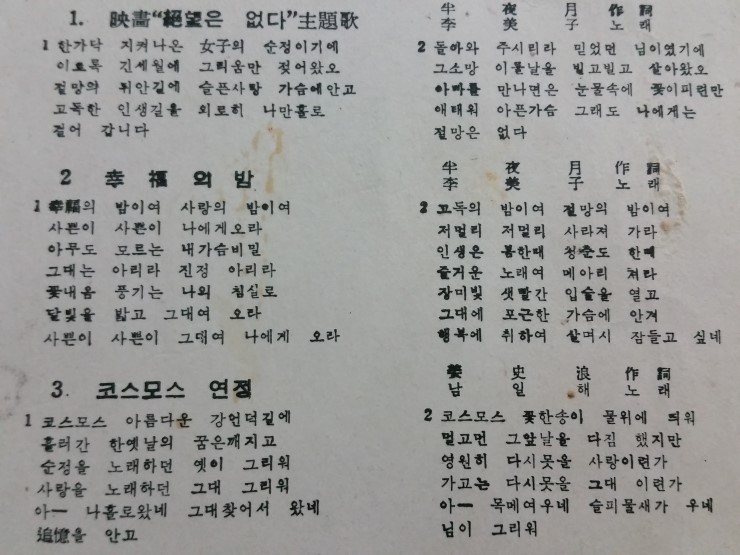 1. 映畵"絕望은 없다"主題歌
半夜月 作詞
李美子 노래
1 한가닥 지켜나온 女子의 순정이기에
이토록 긴세월에 그리움만 젖어왔오
절망의 뒤안길에 슬픈사랑 가슴에안고
고독한 인생길을 외로히 나만홀로
걸어 갑니다
2 돌아와 주시리라 믿었던 님이였기에
그소망 이룰날을 빌고빌고 살아왔오
아빠를 만나면은 눈물속에 꽃이피련만
애태워 아픈가슴 그래도 나에게는
절망은 없다
2 幸福의 밤
半夜月 作詞
李美子 노래
1 幸福의 밤이여 사랑의 밤이여
사쁜이 사쁜이 나에게오라
아무도 모르는 내가슴비밀
그대는 아리라 진정 아리라
꽃내음 풍기는 나의 침실로
달빛을 밟고 그대여 오라
사쁜이 사쁜이 그대여 나에게 오라
2 고독의 밤이여 절망의 밤이여
저멀리 저멀리 사라져 가라
인생은 봄한때 청춘도 한때
즐거운 노래여 메아리 쳐라
장미빛 샛빨간 입술을 열고
그대에 포근한 가슴에 안겨
행복에 취하여 살며시 잠들고 싶네
3. 코스모스 연정
姜史浪 作詞
남일해 노래
1 코스모스 아름다운 강언덕길에
흘러간 한옛날의 꿈은깨지고
순정을 노래하던 옛이 그리워
사랑을 노래하던 그대 그리워
아― 나홀로왔네 그대찾어서 왔네
追憶을 안고
2 코스모스 꽃한송이 물위에 띄워
멀고먼 그앞날을 다짐 했지만
영원히 다시못올 사랑이련가
가고는 다시못올 그대 이련가
아― 목메여우네 슬피물새가 우네
님이 그리워